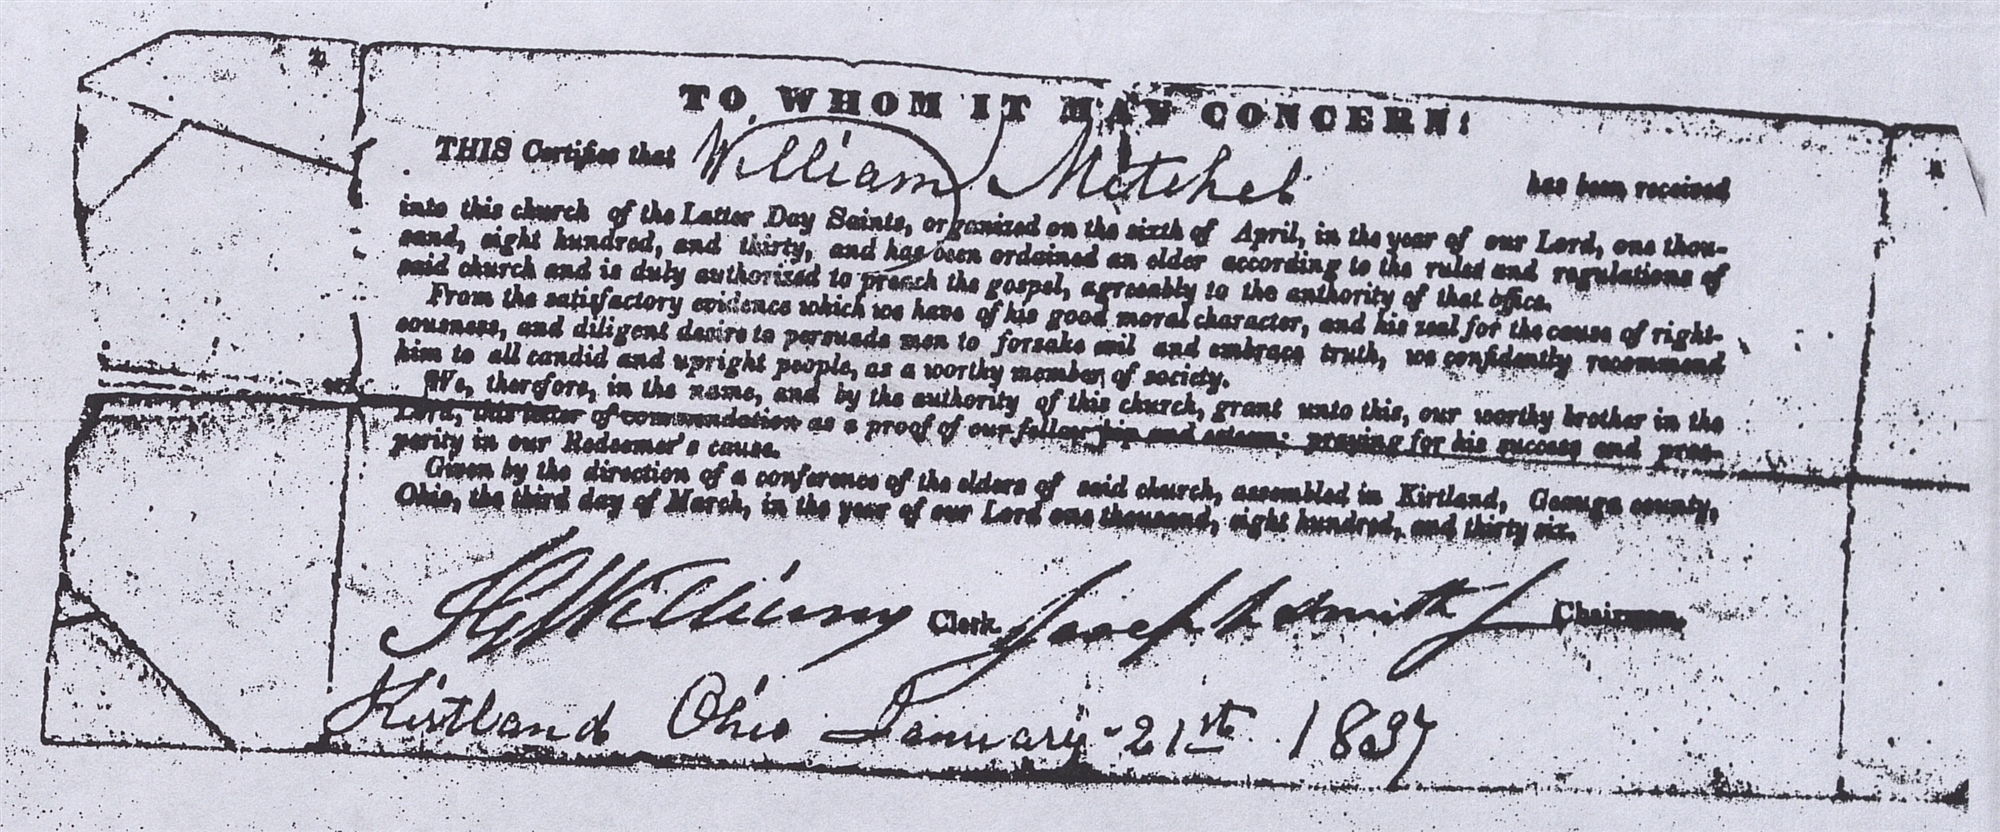 TO WHOM IT MAY CONCERN:
THIS Certifies that William Mitchel has been received
into this church of the Latter Day Saints, organized on the sixth of April, in the year of our Lord, one thou-
sand, eight hundred, and thirty, and has been ordained an elder according to the rules and regulations of
said church and is duly authorized to preach the gospel, agreeably to the authority of that office.
From the satisfactory evidence which we have of his good moral character, and his zeal for the cause of right-
eousness, and diligent desire to persuade men to forsake evil and embrace truth, we confidently recommend
him to all candid and upright people, as a worthy member of society.
We, therefore, in the name, and by the authority of this church, grant unto this, our worthy brother in the
Lord, this letter of commendation as a proof of our fellowship and esteem: praying for his success and pros-
perity in our Redeemer's cause.
Given by the direction of a conference of the elders of said church, assembled in Kirtland, Geauga county,
Ohio, the third day of March, in the year of our Lord one thousand, eight hundred, and thirty six.
F G Williams Clerk. Joseph Smith Jr Chairman.
Kirtland Ohio January 21st 1837